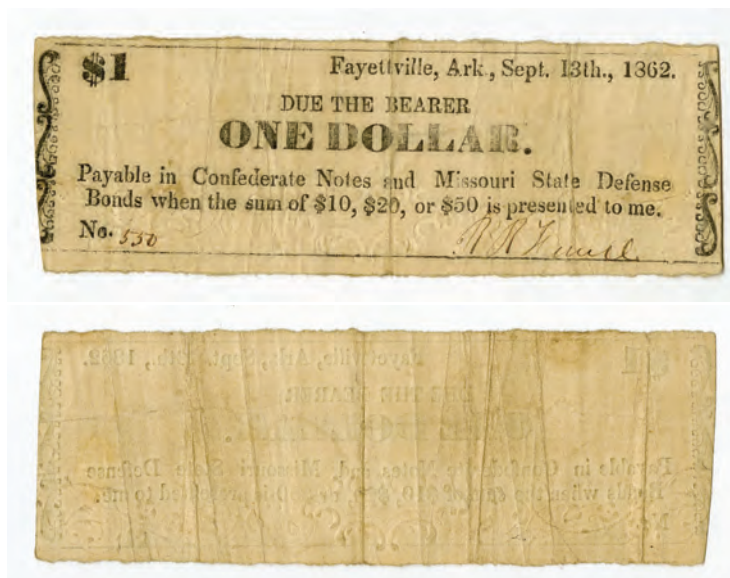 $1 Fayettville, Ark., Sept. 13th., 1862.
DUE THE BEARER
ONE DOLLAR.
Payable in Confederate Notes and Missouri State Defense
Bonds when the sum of $10, $20, or $50 is presented to me.
No. 550